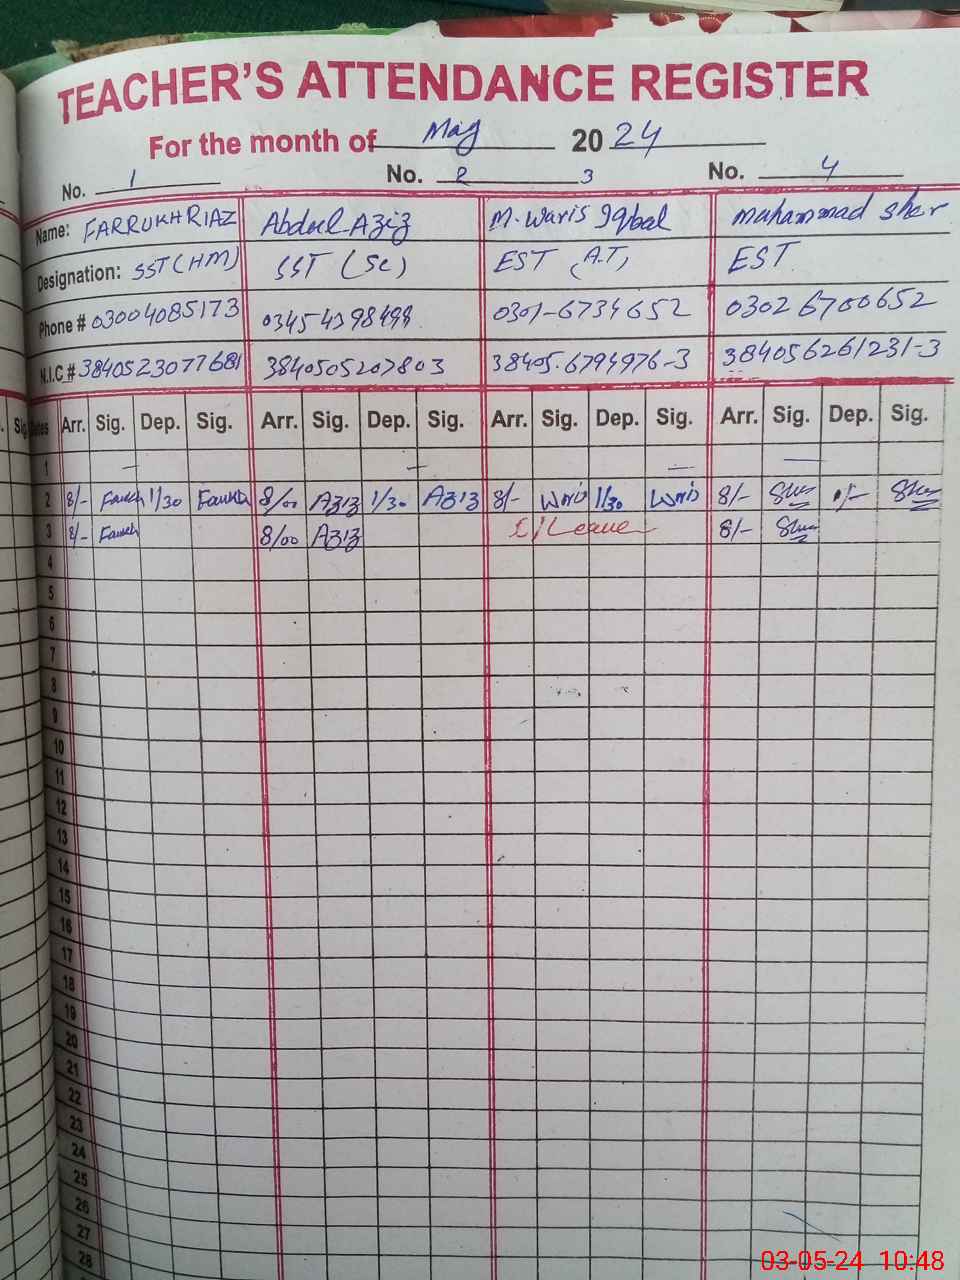 TEACHER'S ATTENDANCE REGISTER
For the month of May 2024
No. 1 No. 2 3 No. 4
Name: FARRUKH RIAZ Abdul Aziz M. Waris Iqbal Muhammad Sher
Designation: SST (HM) SST (Sc) EST (A.T) EST
Phone # 03004085173 03454398498 0301-6734652 03026700652
N.I.C # 3840523077681 3840505207803 38405.6794976-3 384056261231-3
Dates Arr. Sig. Dep. Sig. Arr. Sig. Dep. Sig. Arr. Sig. Dep. Sig. Arr. Sig. Dep. Sig.
1 — — — —
2 8/- Farrukh 1/30 Farrukh 8/00 Aziz 1/30 Aziz 8/- Waris 1/30 Waris 8/- Sher Sher
3 8/- Farrukh 8/00 Aziz Leave 8/- Sher
4
5
6
7
8
9
10
11
12
13
14
15
16
17
18
19
20
21
22
23
24
25
26
27
28
03-05-24 10:48